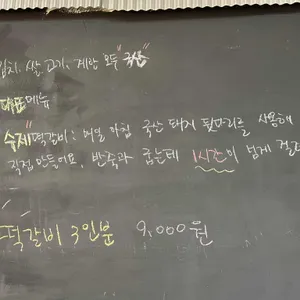 김치, 쌀, 고기, 계란 모두 "국산"
대표메뉴
"수제"떡갈비 : 매일 아침 국산 돼지 뒷다리를 사용해
직접 만들어요, 반죽과 굽는데 1시간이 넘게 걸려
떡갈비 3인분 9,000원